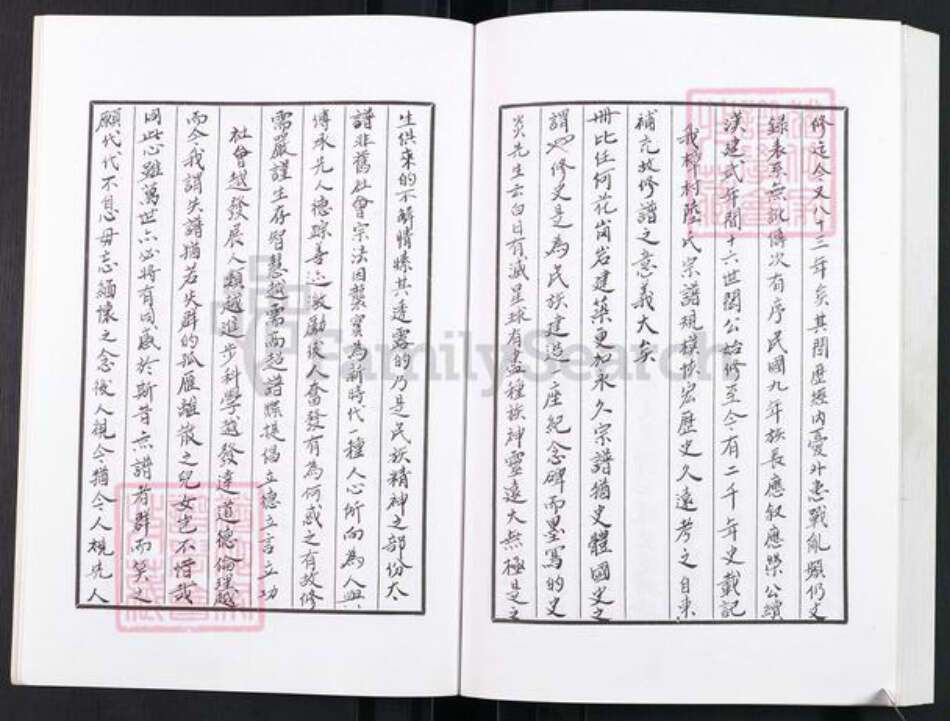 修迄今又八十三年矣其間歷經內憂外患戰亂頻仍史
錄表系無訛傳次有序民國九年族長應叙應榮公續
漢建武年間十六世閎公始修至今有二千年史載記
我樟村陸氏宗譜規模恢宏歷史久遠考之自東
補充故修譜之意義大矣
冊比任何花崗岩建築更加永久宗譜猶史體國史之
謂也修史是為民族建造一座紀念碑而墨寫的史
炎先生云白日有滅星球有盡種族神靈遠大無極是之
生俱來的不解情愫其透露的乃是民族精神之部份大
譜非舊社會宗法因襲實為新時代一種人心所向為人與
傳承先人德踪善迹激勵後人奮發有為何或之有故修
需嚴謹生存智慧越需高超譜牒提倡立德立言立功
社會越發展人類越進步科學越發達道德倫理越
而今我謂失譜猶若失群的孤雁離散之兒女豈不惜哉
同此心雖萬世亦必將有同感於斯昔亦譜者群而笑之
願代代不息毋忘緬懷之念後人視今猶今人視先人
FamilySearch